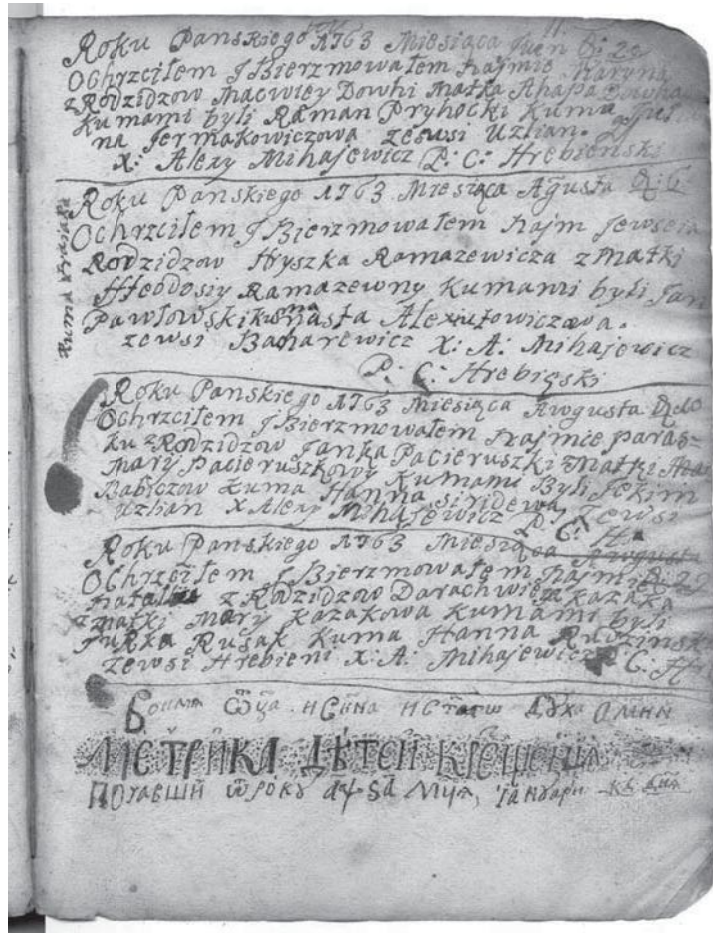 11.
Roku Pańskiego 1763 Miesiąca Juen D: 29
Ochrzciłem J Bierzmowałem Najmie Maryni
z Rodzidzow Macwiey Dowhi Matka Ahapa Dowha
Kumami byli Raman Pryhocki Kuma
na Jermakowiczowa zewsi Uzlian.
X: Alexy Mihajewicz P: C: Hrebienski
Roku Panskiego 1763 Miesiąca Agusta D: 6
Ochrzciłem J Bierzmowałem Najm Jewseia
Rodzidzow Hryszka Ramazewicza z Matki
Fteodosiy Ramazewny Kumami byli Jan
Pawłowski Kuma Nasta Alexiutowiczowa.
zewsi Baharewicz X: A: Mihajewicz
P: C: Hrebięski
Roku Panskiego 1763 Miesiąca Awgusta D:
Ochrzciłem J Bierzmowałem Najmie paras
ku z Rodzidzow Janka Pacieruszki Matki
Mary Pacieruszkowy Kumami Byli Jekim
Babiczow Kuma Hanna zewsi
Uzlian X Alexy Mihajewicz P: C: H
Roku Panskiego 1763 Miesiąca Awgusta
Ochrzciłem J Bierzmowałem Najmie D: 29
Natal z Rodzidzow Darachwieia Kazaka
z Matki Mary Kazakowa Kumami byli
Jurka Rusak Kuma Hanna Rudzinsk
zewsi Hrebieni X: A: Mihajewicz P: C: H
Воимя Ѿца и Сн҃а и Ст҃агѡ Дух҃а Аминь
МЕТРИКА ДѢТЕЙ КРЕЩЕНИЯ
Почавши Ѿ року мц҃я, Іануари дня